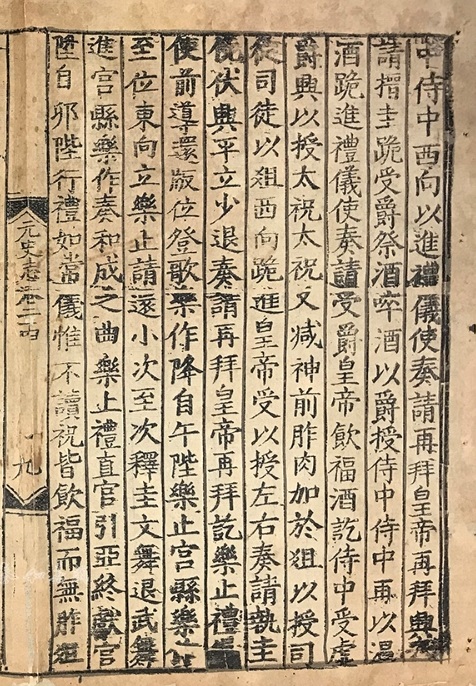 中侍中西向以進禮儀使奏請再拜皇帝再拜興
請搢圭跪受爵祭酒啐酒以爵授侍中侍中再以溫
酒跪進禮儀使奏請受爵皇帝飲福酒訖侍中受虛
爵興以授太祝太祝又減神前胙肉加於俎以授司
徒司徒以俎西向跪進皇帝受以授左右奏請執圭
俛伏興平立少退奏請再拜皇帝再拜訖樂止禮儀
使前導還版位登歌樂作降自午陛樂止宮縣樂
至位東向立樂止請還小次至次釋圭文舞退武舞
進宮縣樂作奏和成之曲樂止禮直官引亞終獻官
陞自卯陛行禮如常儀惟不讀祝皆飲福而無胙俎
元史志卷二四
九